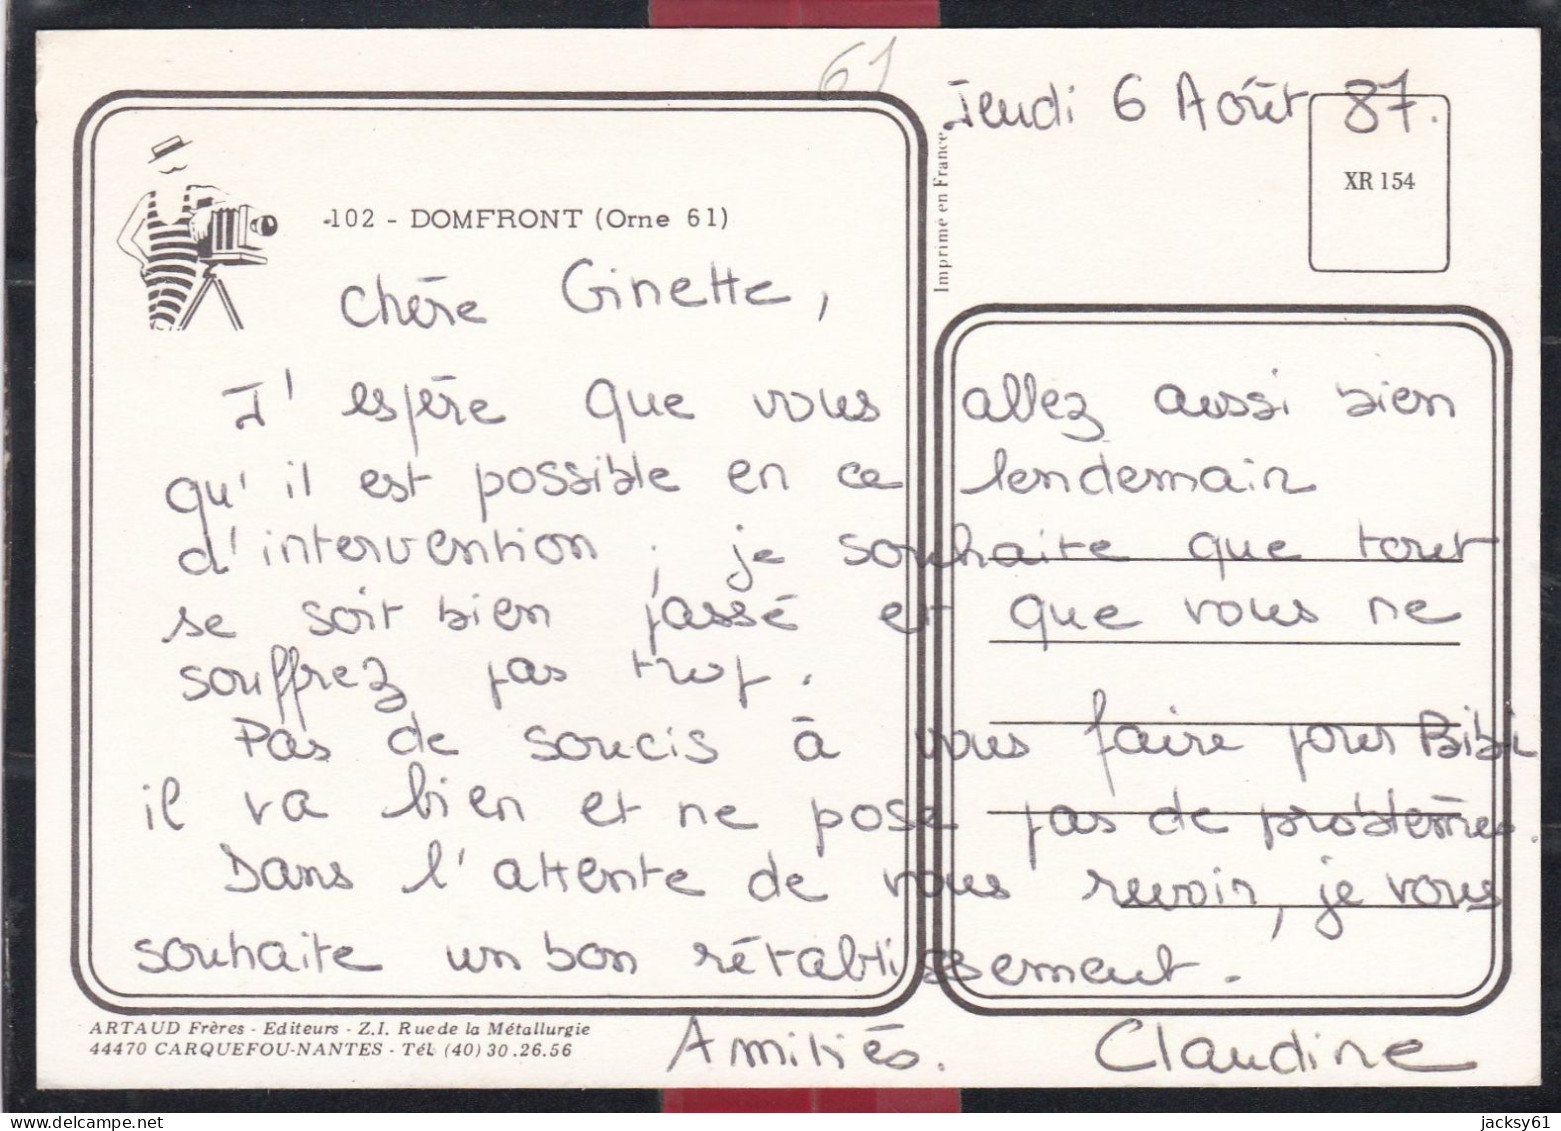 61
Jeudi 6 Août 87.
XR 154
Imprimé en France
102 - DOMFRONT (Orne 61)
Chère Ginette,
J'espère que vous allez aussi bien
qu'il est possible en ce lendemain
d'intervention, je souhaite que tout
se soit bien passé et que vous ne
souffrez pas trop.
Pas de soucis à vous faire pour Bibi
il va bien et ne pose pas de problèmes.
Dans l'attente de vous revoir, je vous
souhaite un bon rétablissement.
Amitiés. Claudine
ARTAUD Frères - Editeurs - Z.I. Rue de la Métallurgie
44470 CARQUEFOU-NANTES - Tél. (40) 30.26.56
jacksy61